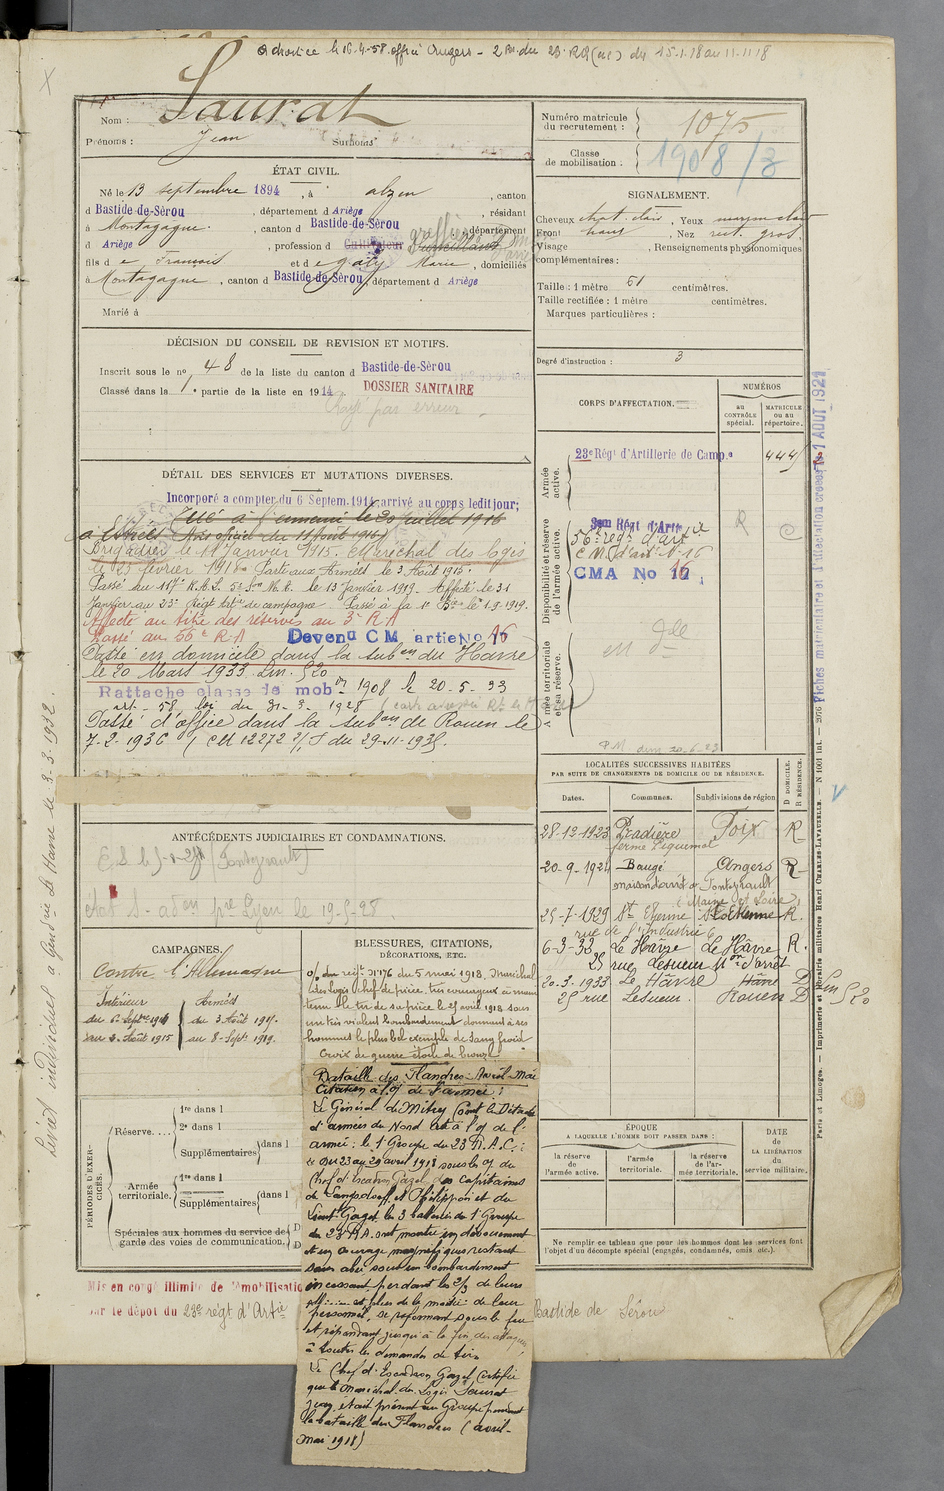 Saurat
Nom :
Numéro matricule du recrutement : 1075
Prénoms : Jean
Surnoms
Classe de mobilisation : 1908/3
ÉTAT CIVIL.
Né le 13 septembre 1894, à alzen, canton
d Bastide-de-Sérou, département d Ariège, résidant
à Montagagne, canton d Bastide-de-Sérou, département
d Ariège, profession d Cultivateur Surveillant greffier
fils de François et de galy Marie, domiciliés
à Montagagne, canton d Bastide-de-Sérou, département d Ariège
Marié à
SIGNALEMENT.
Cheveux chat. clair, Yeux marron clair
Front haut, Nez rect. gros,
Visage , Renseignements physionomiques
complémentaires :
Taille : 1 mètre 61 centimètres.
Taille rectifiée : 1 mètre centimètres.
Marques particulières :
Degré d'instruction : 3
DÉCISION DU CONSEIL DE REVISION ET MOTIFS.
Inscrit sous le no 48 de la liste du canton d Bastide-de-Sérou
Classé dans la 1e partie de la liste en 1914
DOSSIER SANITAIRE
Rayé par erreur
DÉTAIL DES SERVICES ET MUTATIONS DIVERSES.
Incorporé a compter du 6 Septem. 1914, arrivé au corps ledit jour;
Tué à l'ennemi le 30 juillet 1916
à Estrées Avis officiel du 11 Août 1916
Brigadier le 11 Janvier 1915. Maréchal des logis
le 23 février 1918. Parti aux Armées le 3 Août 1915.
Passé au 117e R.A.L. le 13 Janvier 1919. Affecté le 31
Janvier au 23e Régt Artie de campagne. Passé à la 1e Bie le 1.9.1919.
Affecté au titre des réserves au 3e R A
Passé au 56e R.A Devenu CM artie No 16
Passé en domicile dans la subon du Havre
le 20 Mars 1933. Lm. 520
Rattaché classe de mobon 1908 le 20-5-33
art. 58, loi du 31-3-1928
Passé d'office dans la subon de Rouen le
7-2-1936 (CM 12272 2/S du 29-11-1935.
CORPS D'AFFECTATION.
NUMÉROS
au CONTRÔLE spécial.
MATRICULE ou au répertoire.
Armée active.
23e Régt d'Artillerie de Campe
4445
Disponibilité et réserve de l'armée active.
56e régt d'artie
C M d'artie no 16
CMA No 16
Armée territoriale et sa réserve.
LOCALITÉS SUCCESSIVES HABITÉES
PAR SUITE DE CHANGEMENTS DE DOMICILE OU DE RÉSIDENCE.
Dates.
Communes.
Subdivisions de région
D DOMICILE.
R RÉSIDENCE.
28-12-1923 Pradière Foix R
20-9-1924 Baugé Angers R
25-7-1929 St Etienne St Etienne R.
rue de l'Industrie 6
6-3-33 Le Havre Le Hâvre R.
25 rue Lesueur
20-3-1933 Le Hâvre Hâvre D Lm 520
25 rue Lesueur. Rouen D
ANTÉCÉDENTS JUDICIAIRES ET CONDAMNATIONS.
CAMPAGNES.
Contre l'Allemagne
Intérieur
du 6 Septbre 1914
au 2 Août 1915
Armées
du 3 Août 1915
au 8 Sept. 1919.
BLESSURES, CITATIONS, DÉCORATIONS, ETC.
o/ du régt No 176 du 5 mai 1918, Maréchal
des logis chef de pièce, très courageux a main-
tenu le tir de sa pièce le 25 avril 1918 sous
un très violent bombardement donnant à ses
hommes le plus bel exemple de sang froid
Croix de guerre étoile de bronze
Bataille des Flandres - Avril-Mai
Citation à l'o/ de l'armée :
Le Général de Mitry Comt le Détacht
d'armées du Nord cite à l'o/ de l'
armée : le 1e Groupe du 23 R.A.C. :
Du 23 au 29 avril 1918 sous les o/ du
Chef d'Escadron Gazel, des Capitaines
de Langsdorff et Philippon et du
Lieut. Gaget les 3 batteries du 1e Groupe
du 23 R.A. ont montré un dévouement
et un courage magnifiques restant
sans abri sous un bombardement
incessant perdant les 2/3 de leurs
officiers et plus de la moitié de leur
personnel, se reformant sous le feu
et répondant jusqu'à la fin des attaques
à toutes les demandes de tirs
Le Chef d'Escadron Gazel certifie
que le Maréchal des Logis Saurat
Jean était présent au Groupe pendant
la bataille des Flandres (avril-
mai 1918)
PÉRIODES D'EXERCICES.
Réserve....
1re dans l
2e dans l
Supplémentaires dans l
Armée territoriale.
1re dans l
Supplémentaires dans l
Spéciales aux hommes du service de
garde des voies de communication.
ÉPOQUE
A LAQUELLE L'HOMME DOIT PASSER DANS :
la réserve de l'armée active.
l'armée territoriale.
la réserve de l'armée territoriale.
DATE de LA LIBÉRATION du service militaire.
Ne remplir ce tableau que pour les hommes dont les services font
l'objet d'un décompte spécial (engagés, condamnés, omis, etc.).
Mis en congé illimité de démobilisation
par le dépôt du 23e régt d'Artie
Bastide de Sérou
Livret individuel à Gendrie Le Havre le 3-3-1932.
Fiches matriculaire et d'affectation créées le 1 AOUT 1921
Paris et Limoges. — Imprimerie et librairie militaires Henri CHARLES-LAVAUZELLE. — N 1001 int. — 2076